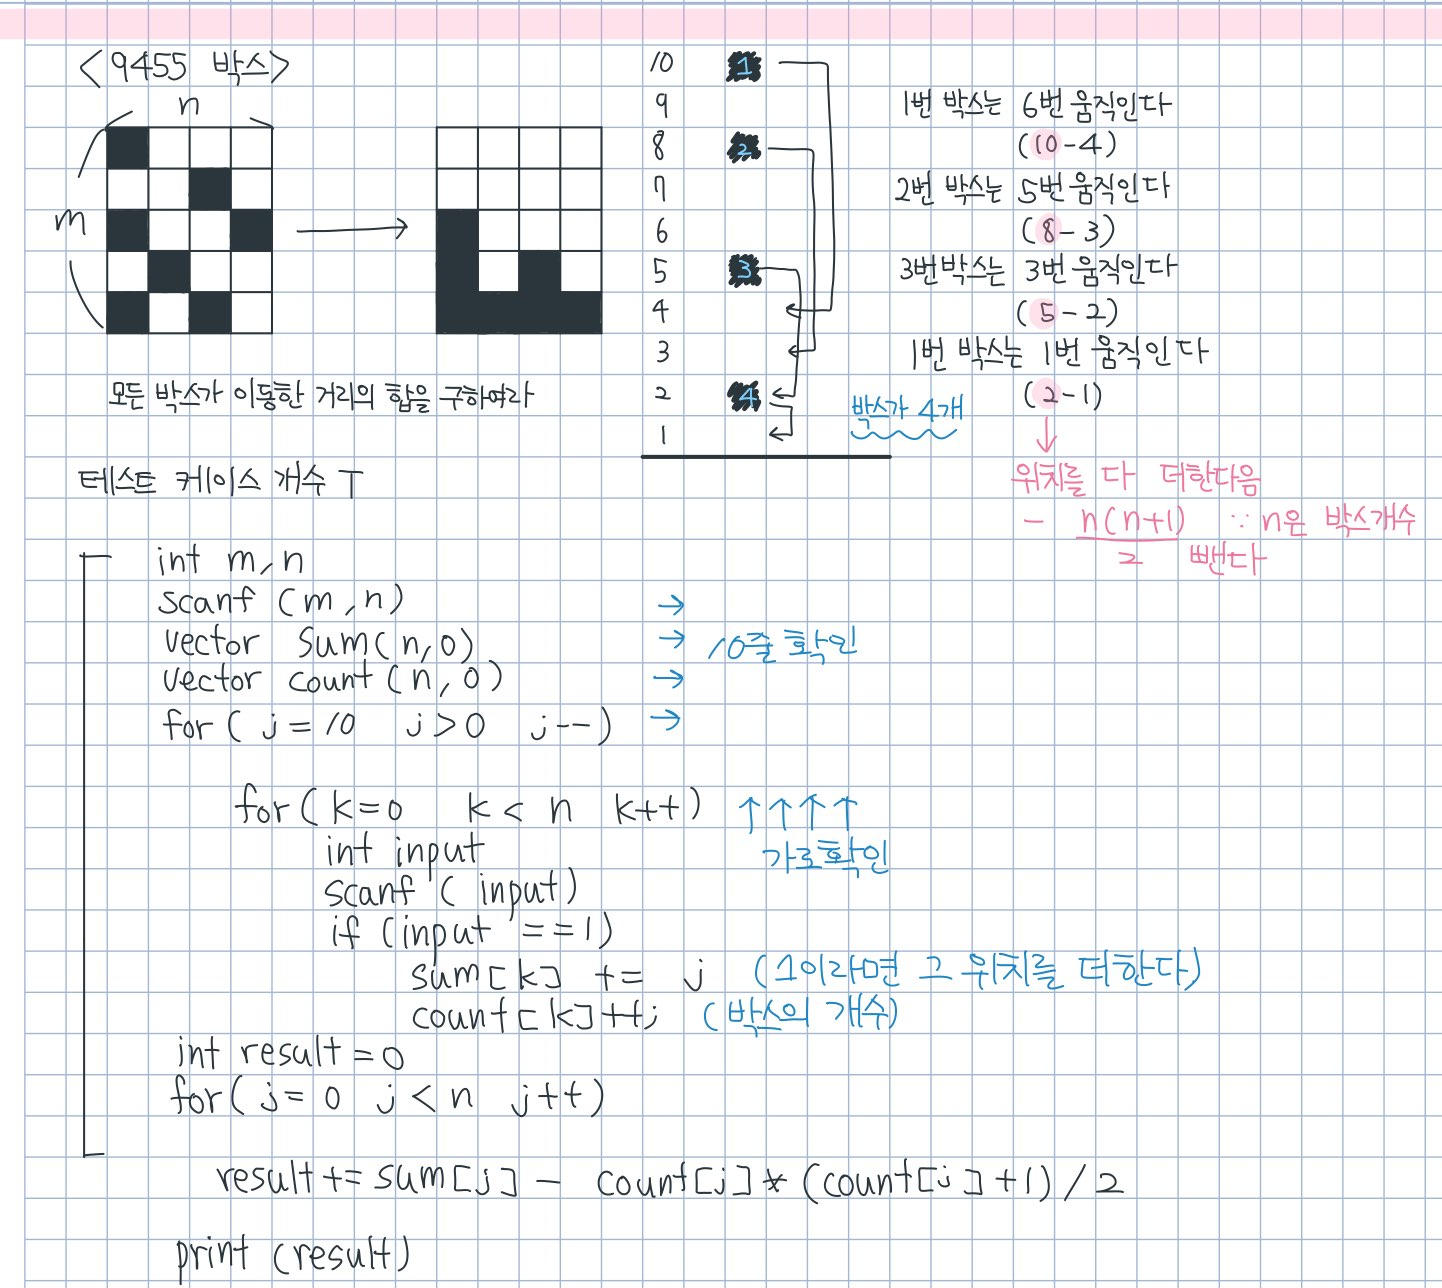 <9455 박스>
n
m
모든 박스가 이동한 거리의 합을 구하여라
테스트 케이스 개수 T
10 1
9
8 2
7
6
5 3
4
3
2 4
1
박스가 4개
1번 박스는 6번 움직인다
(10-4)
2번 박스는 5번 움직인다
(8-3)
3번 박스는 3번 움직인다
(5-2)
1번 박스는 1번 움직인다
(2-1)
↓
위치를 다 더한다음
- n(n+1)/2 ∵ n은 박스개수
뺀다
int m,n
scanf (m,n) →
vector sum(n,0) → 10줄 확인
vector count(n,0) →
for( j=10 j>0 j--) →
for( k=0 k<n k++) ↑↑↑↑
int input 가로확인
scanf ( input)
if (input ==1)
sum[k] += j (1이라면 그 위치를 더한다)
count[k]++; (박스의 개수)
int result=0
for( j= 0 j<n j++)
result += sum[j] - count[j]*(count[j]+1)/2
print (result)